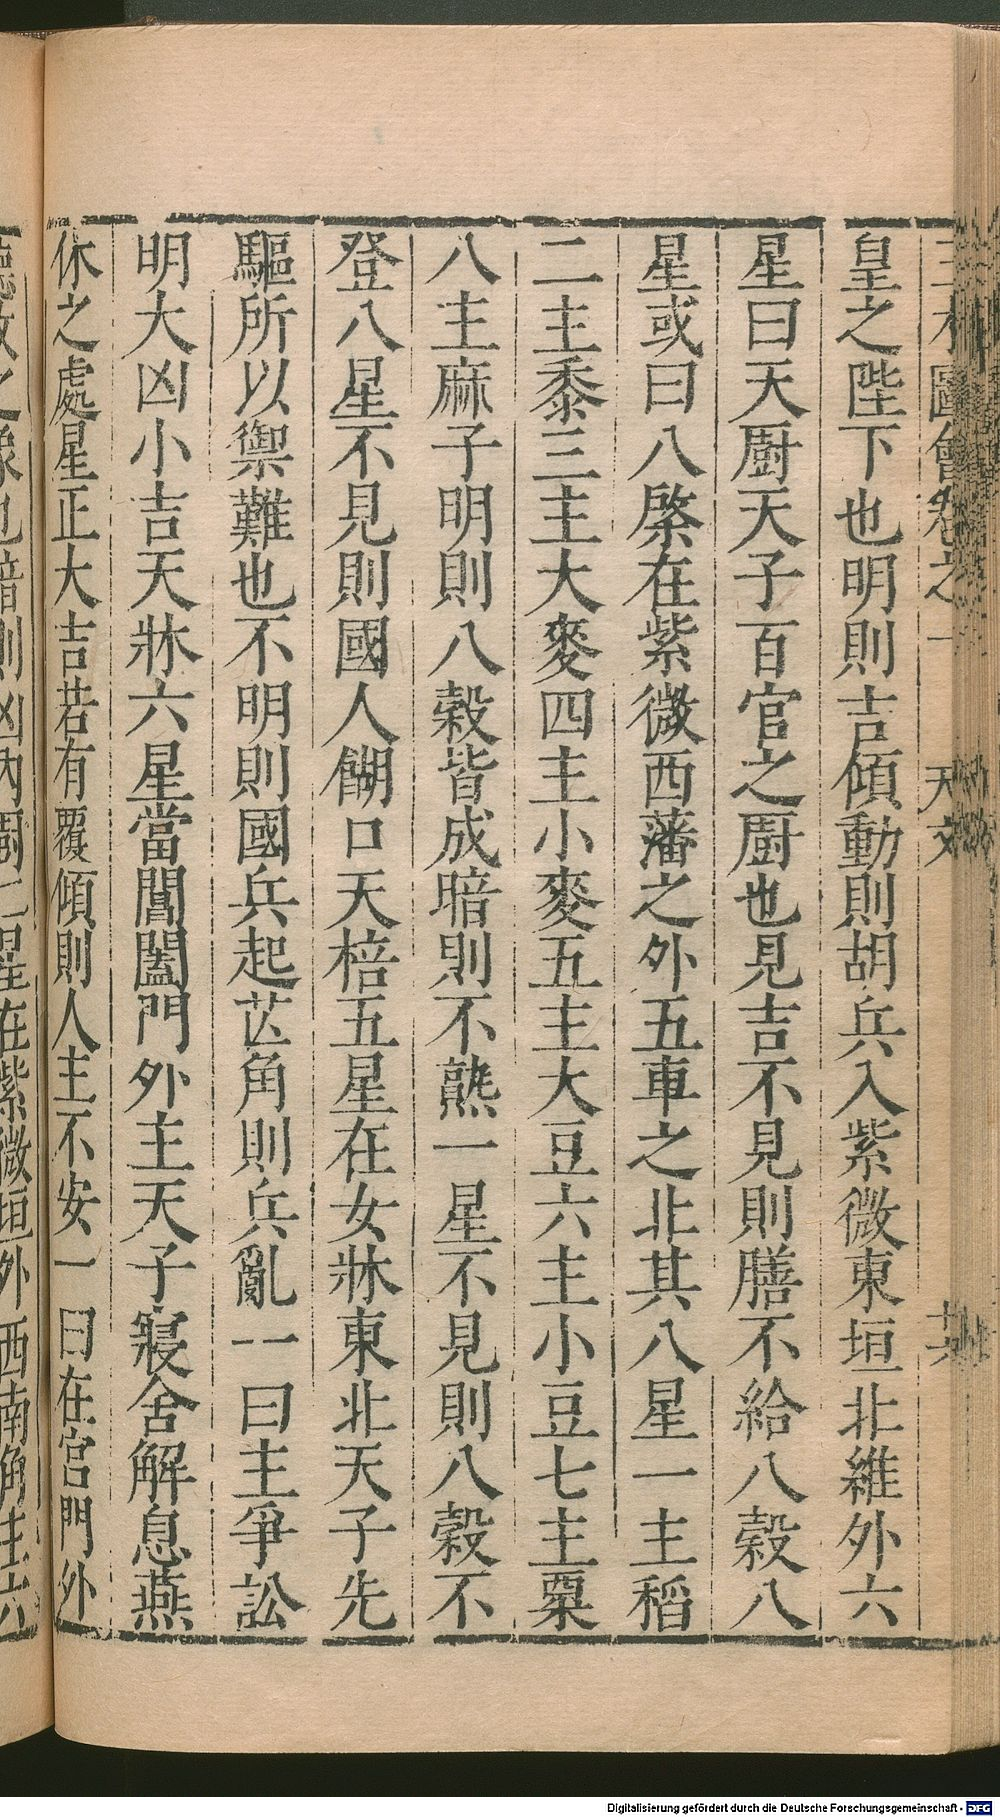 圖會卷之一 天文
皇之陛下也明則吉傾動則胡兵入紫微東垣北維外六
星曰天厨天子百官之厨也見吉不見則膳不給八穀八
星或曰八棨在紫微西藩之外五車之北其八星一主稻
二主黍三主大麥四主小麥五主大豆六主小豆七主粟
八主麻子明則八穀皆成暗則不熟一星不見則八穀不
登八星不見則國人餬口天棓五星在女牀東北天子先
驅所以禦難也不明則國兵起芒角則兵亂一曰主爭訟
明大凶小吉天牀六星當閶闔門外主天子寢舍解息燕
休之處星正大吉若有覆傾則人主不安一曰在宫門外
之象也暗則凶内厨二星在紫微垣外西南角主六
Digitalisierung gefördert durch die Deutsche Forschungsgemeinschaft - DFG